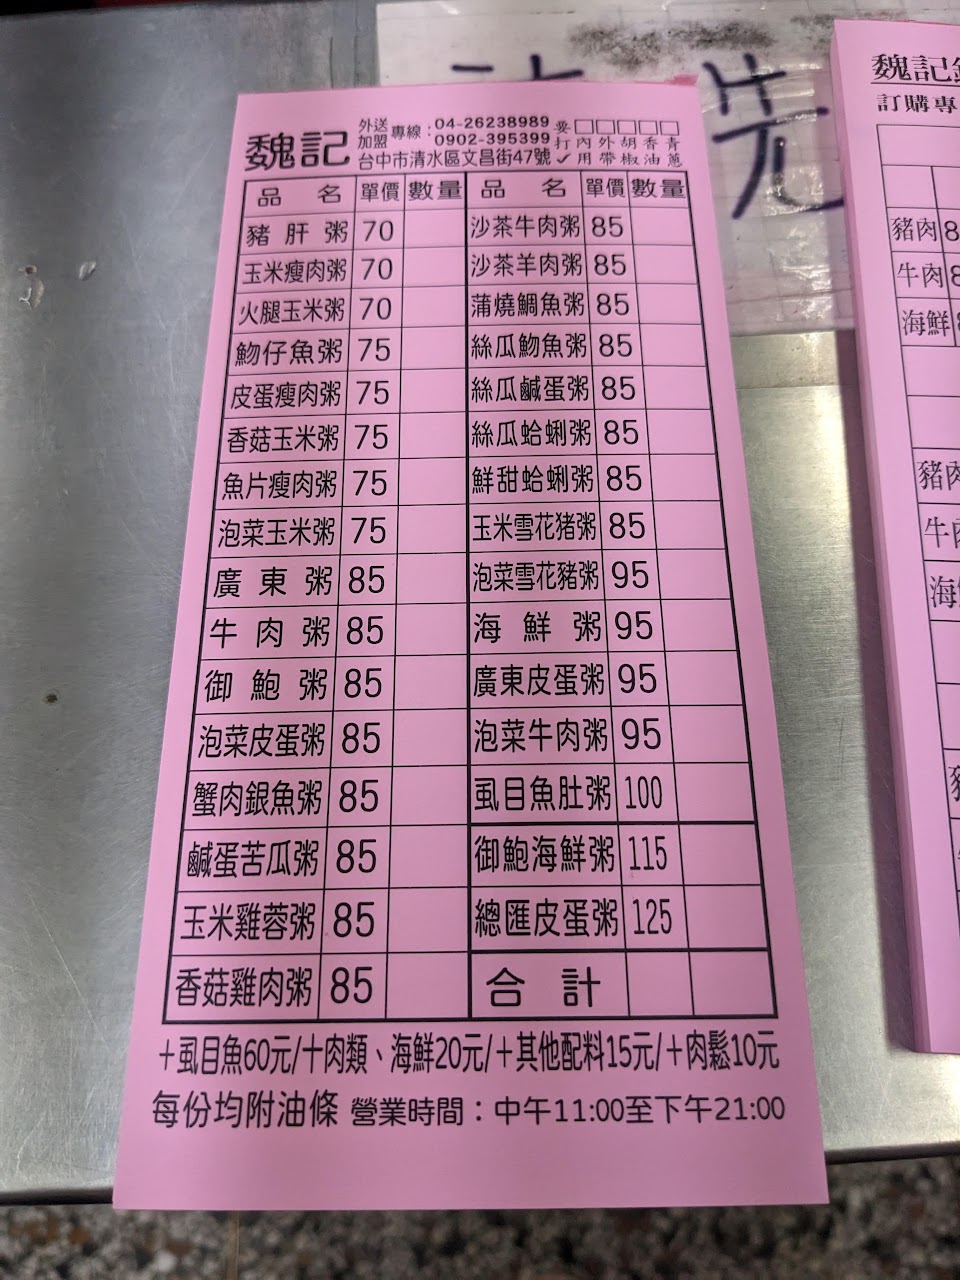 魏記
外送 加盟 專線：04-26238989
0902-395399
台中市清水區文昌街47號
要打✓ □□□□□
內用 外帶 胡椒 香油 青蔥
品名 單價 數量 品名 單價 數量
豬肝粥 70 沙茶牛肉粥 85
玉米瘦肉粥 70 沙茶羊肉粥 85
火腿玉米粥 70 蒲燒鯛魚粥 85
魩仔魚粥 75 絲瓜魩魚粥 85
皮蛋瘦肉粥 75 絲瓜鹹蛋粥 85
香菇玉米粥 75 絲瓜蛤蜊粥 85
魚片瘦肉粥 75 鮮甜蛤蜊粥 85
泡菜玉米粥 75 玉米雪花猪粥 85
廣東粥 85 泡菜雪花豬粥 95
牛肉粥 85 海鮮粥 95
御鮑粥 85 廣東皮蛋粥 95
泡菜皮蛋粥 85 泡菜牛肉粥 95
蟹肉銀魚粥 85 虱目魚肚粥 100
鹹蛋苦瓜粥 85 御鮑海鮮粥 115
玉米雞蓉粥 85 總匯皮蛋粥 125
香菇雞肉粥 85 合計
＋虱目魚60元/＋肉類、海鮮20元/＋其他配料15元/＋肉鬆10元
每份均附油條 營業時間：中午11:00至下午21:00
先
魏記
訂購專
豬肉 8
牛肉 8
海鮮
豬肉
牛肉
海